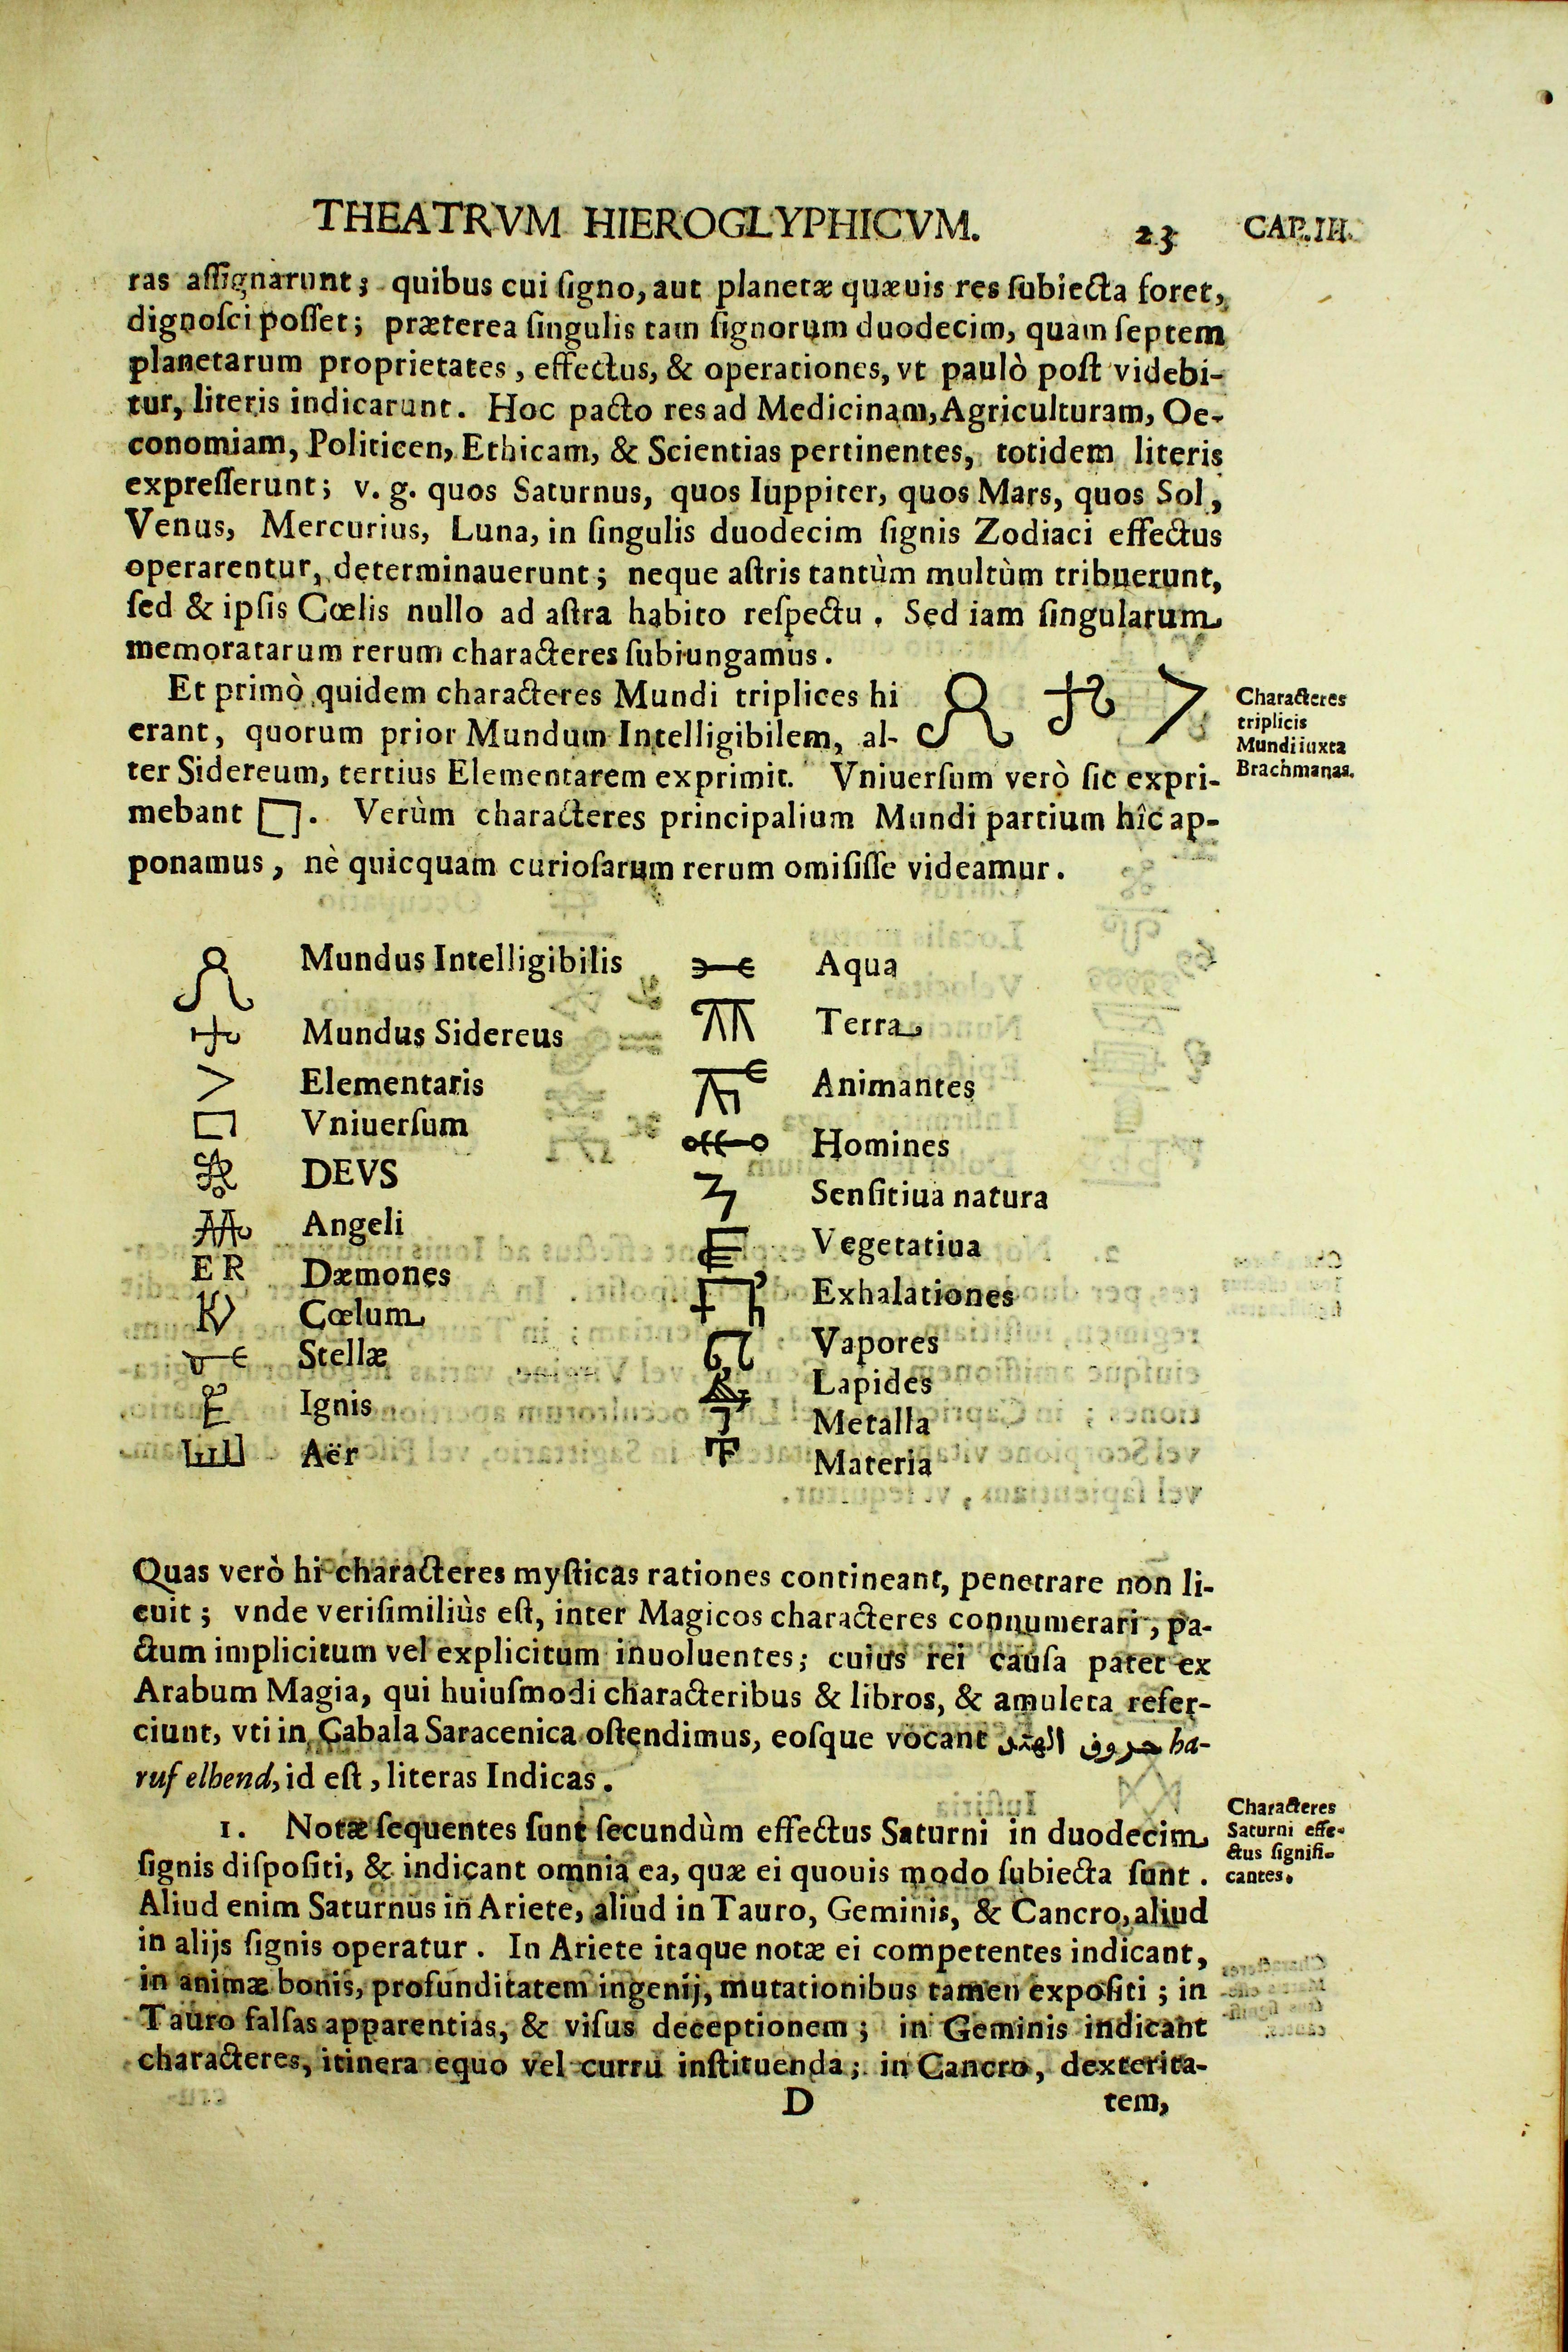 THEATRVM HIEROGLYPHICVM. 23 CAP. III.
ras aſſignarunt; quibus cui ſigno, aut planetæ quæuis res ſubiecta foret,
dignoſci poſſet; præterea ſingulis tam ſignorum duodecim, quam ſeptem
planetarum proprietates, effectus, & operationes, vt paulò poſt videbi-
tur, literis indicarunt. Hoc pacto res ad Medicinam, Agriculturam, Oe-
conomiam, Politicen, Ethicam, & Scientias pertinentes, totidem literis
expreſſerunt; v. g. quos Saturnus, quos Iuppiter, quos Mars, quos Sol,
Venus, Mercurius, Luna, in ſingulis duodecim ſignis Zodiaci effectus
operarentur, determinauerunt; neque aſtris tantùm multùm tribuerunt,
ſed & ipſis Cœlis nullo ad aſtra habito reſpectu. Sed iam ſingularum
memoratarum rerum characteres ſubiungamus.
Et primò quidem characteres Mundi triplices hi
erant, quorum prior Mundum Intelligibilem, al-
ter Sidereum, tertius Elementarem exprimit. Vniuerſum verò ſic expri-
mebant . Verùm characteres principalium Mundi partium hîc ap-
ponamus, nè quicquam curioſarum rerum omiſiſſe videamur.
Characteres
triplicis
Mundi iuxta
Brachmanas.
Mundus Intelligibilis
Mundus Sidereus
Elementaris
Vniuerſum
DEVS
Angeli
ER Dæmones
Cœlum
Stellæ
Ignis
Aër
Aqua
Terra
Animantes
Homines
Senſitiua natura
Vegetatiua
Exhalationes
Vapores
Lapides
Metalla
Materia
Quas verò hi characteres myſticas rationes contineant, penetrare non li-
cuit; vnde veriſimiliùs eſt, inter Magicos characteres connumerari, pa-
ctum implicitum vel explicitum inuoluentes; cuius rei cauſa patet ex
Arabum Magia, qui huiuſmodi characteribus & libros, & amuleta refer-
ciunt, vti in Cabala Saracenica oſtendimus, eoſque vocant حروف الهند ha-
ruf elhend, id eſt, literas Indicas.
1. Notæ ſequentes ſunt ſecundùm effectus Saturni in duodecim
ſignis diſpoſiti, & indicant omnia ea, quæ ei quouis modo ſubiecta ſunt.
Aliud enim Saturnus in Ariete, aliud in Tauro, Geminis, & Cancro, aliud
in alijs ſignis operatur. In Ariete itaque notæ ei competentes indicant,
in animæ bonis, profunditatem ingenij, mutationibus tamen expoſiti; in
Tauro falſas apparentias, & viſus deceptionem; in Geminis indicant
characteres, itinera equo vel curru inſtituenda; in Cancro, dexterita-
Characteres
Saturni effe-
ctus ſignifi-
cantes.
D tem,